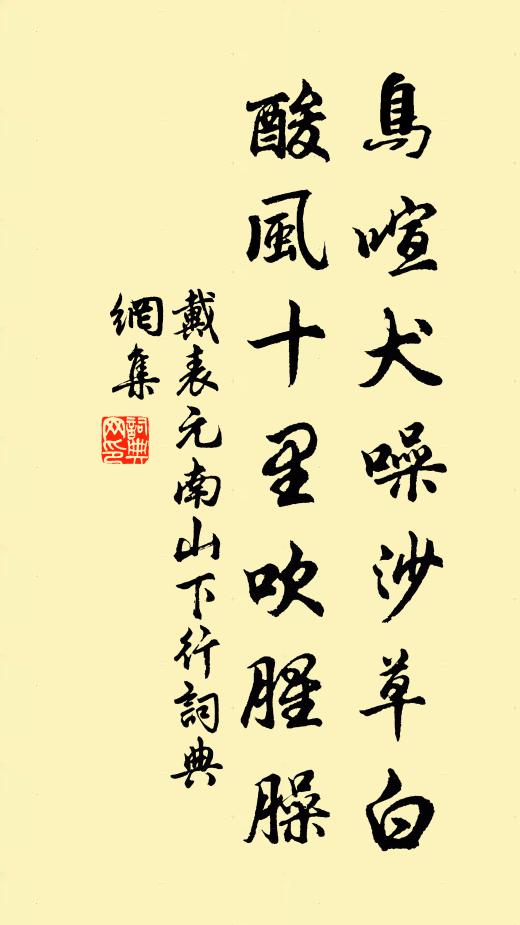 鳥喧犬噪沙草白
酸風十里吹腥臊
戴表元南山下行詞典
網集
詞典
網印